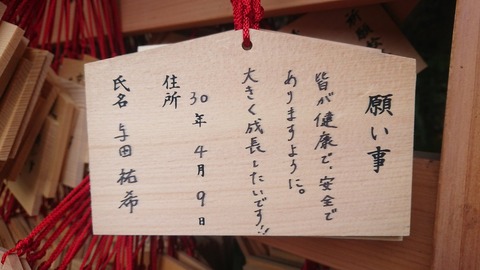 願い事
皆が健康で、安全で
ありますように。
大きく成長したいです!!
30年 4月 9日
住所
氏名 与田 祐希